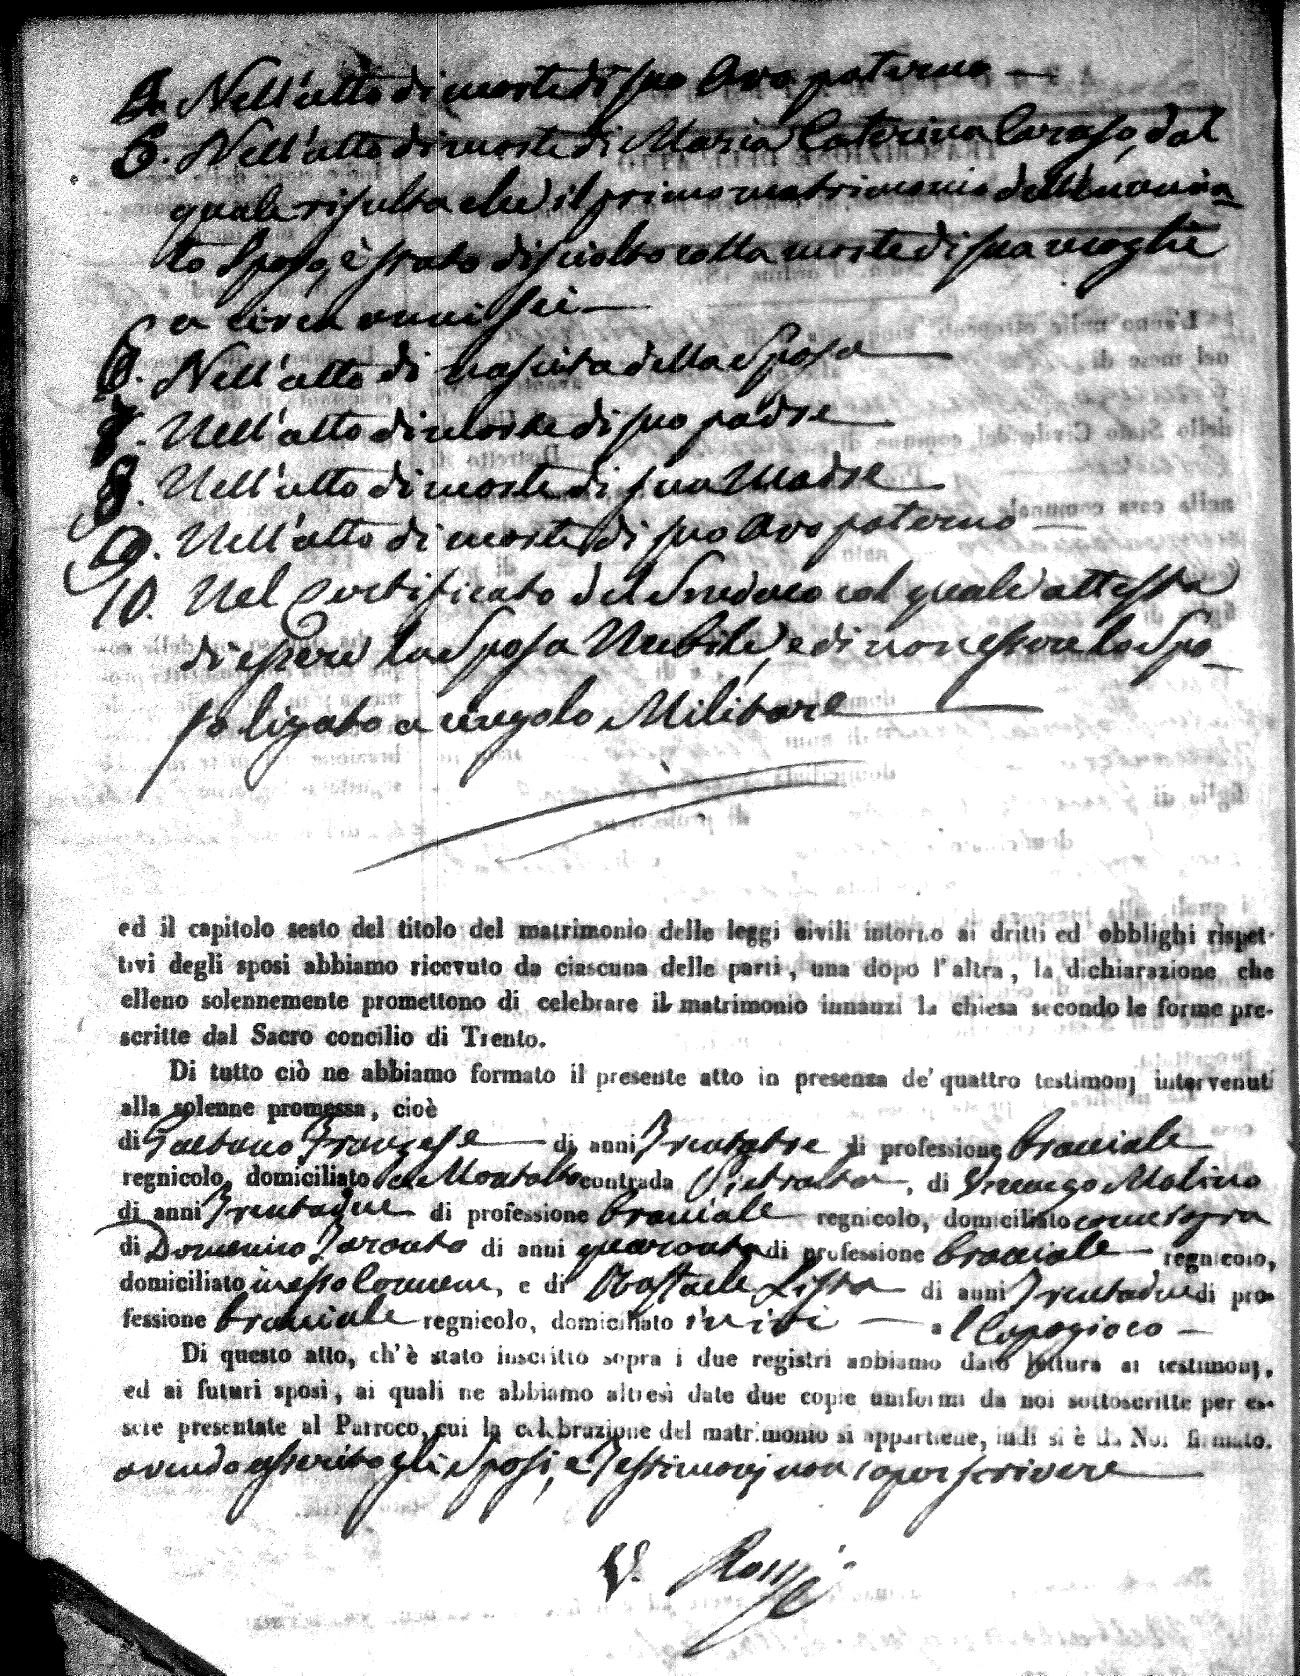 4. Nell'atto di morte di suo Avo paterno —
5. Nell'atto di morte di Maria Caterina Caruso, dal
quale risulta che il primo matrimonio dell'enuncia=
to Sposo, è stato disciolto colla morte di sua moglie
a circa anni sei —
6. Nell'atto di nascita della Sposa
7. Nell'atto di morte di suo padre
8. Nell'atto di morte di sua Madre
9. Nell'atto di morte di suo Avo paterno —
10. Nel Certificato del Sindaco col quale attesta
di essere la Sposa Nubile, e di non essere lo Spo-
so ligato a vingolo Militare
ed il capitolo sesto del titolo del matrimonio delle leggi civili intorno ai dritti ed obblighi rispet-
tivi degli sposi abbiamo ricevuto da ciascuna delle parti, una dopo l'altra, la dichiarazione che
elleno solennemente promettono di celebrare il matrimonio innanzi la chiesa secondo le forme pre-
scritte dal Sacro concilio di Trento.
Di tutto ciò ne abbiamo formato il presente atto in presenza de' quattro testimonj intervenuti
alla solenne promessa, cioè
di Gaetano Franzese di anni Trentatre di professione bracciale
regnicolo, domiciliato in Montalto contrada Pietralta, di Vincenzo Molino
di anni Trentadue di professione bracciale regnicolo, domiciliato come sopra
di Domenico Taranto di anni quaranta di professione bracciale regnicolo,
domiciliato in esso Comune, e di Raffaele Lissa di anni Trentadue di pro-
fessione bracciale regnicolo, domiciliato ivi — al Capogioco —
Di questo atto, ch'è stato inscritto sopra i due registri abbiamo dato lettura ai testimonj,
ed ai futuri sposi, ai quali ne abbiamo altresì date due copie uniformi da noi sottoscritte per es-
sere presentate al Parroco, cui la celebrazione del matrimonio si appartiene, indi si è da Noi firmato.
avendo asserito gli Sposi, e Testimonj non saper scrivere
V. Rossi